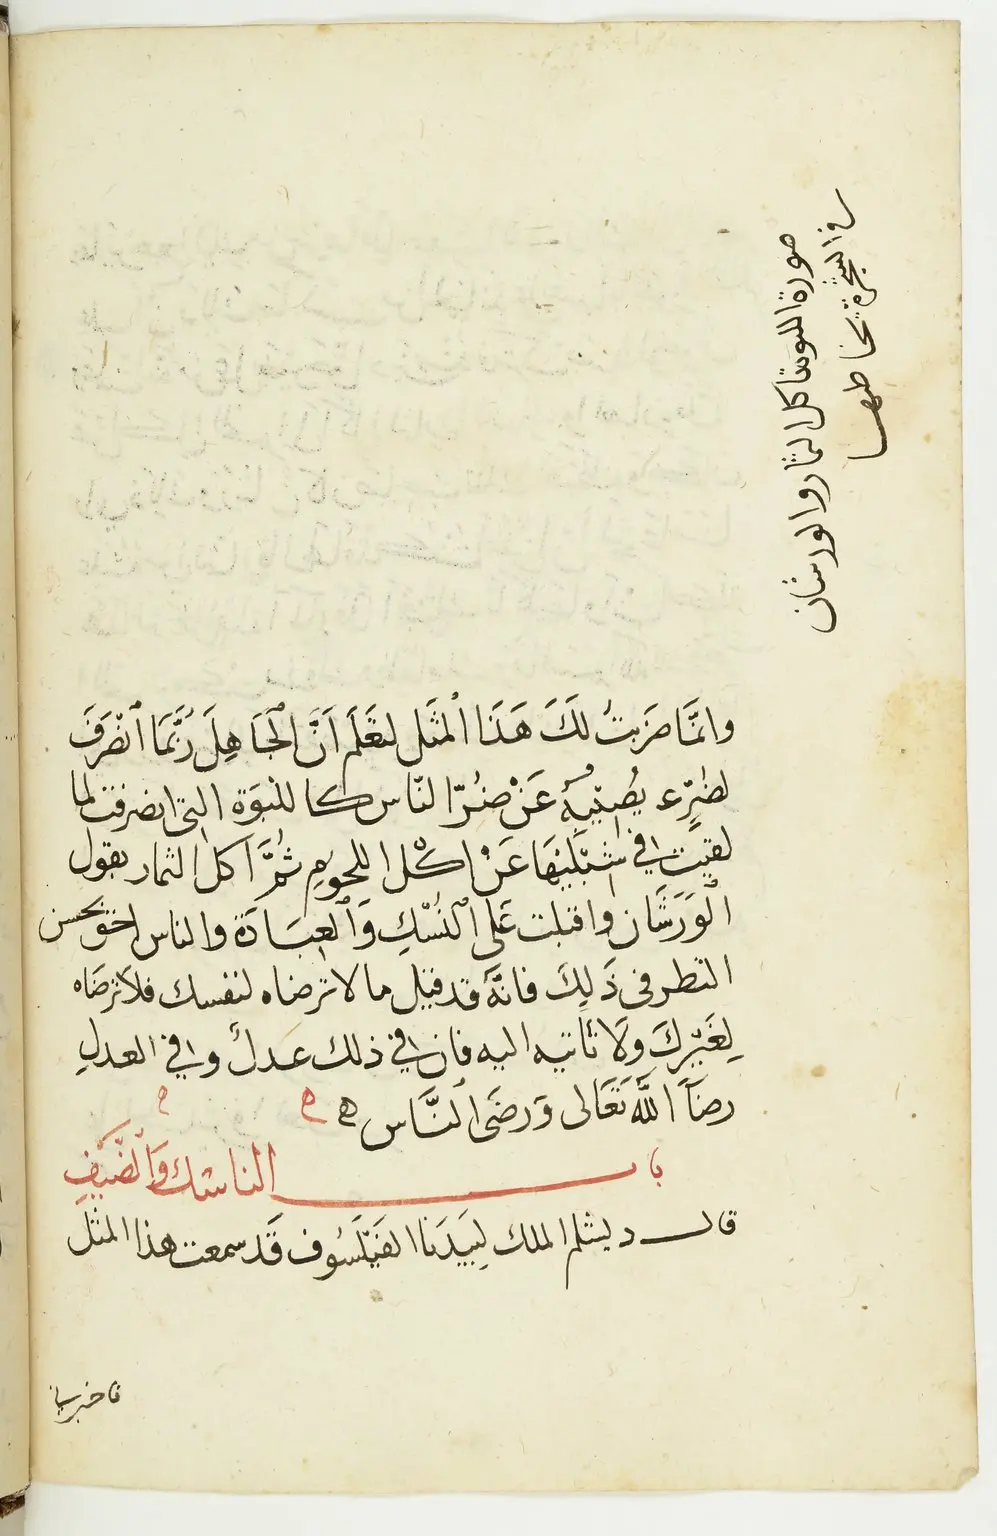 صورة اللبوة تاكل الثمار والورشان
في الشجرة يخاطبها
وانما ضربت لَكَ هَذَا المثَل لتَعْلَم اَنَّ الجَاهِلَ رُبَّمَا انْصَرَفَ
لضُرٍّ يُصيْبُهُ عَنْ ضُرّ النّاس كاللبوَة التي انصرفت لما
لقيَت في شبْلَيْهَا عَنْ اكْل اللحُومِ ثُمَّ اكل الثمار بقول
الْوَرَشَان واقبلت عَلى النُسْكِ وَالْعِبَادَة والناس احَق بحسن
النظر في ذَلِكَ فانَّهُ قد قيل ما لا ترضاه لنفسك فلا ترضَاه
لِغَيْرِكَ وَلَا تَاتيه اليه فان في ذلك عدل وفي العدلِ
رضَآ اللَّه تَعَالى وَرضَى النَّاس
باب الناسك وَالضَّيْفِ
قال دبشلم الملك لِبَيْدَبا الفَيْلَسُوف قَد سمعت هذا المثل
فاخبرني